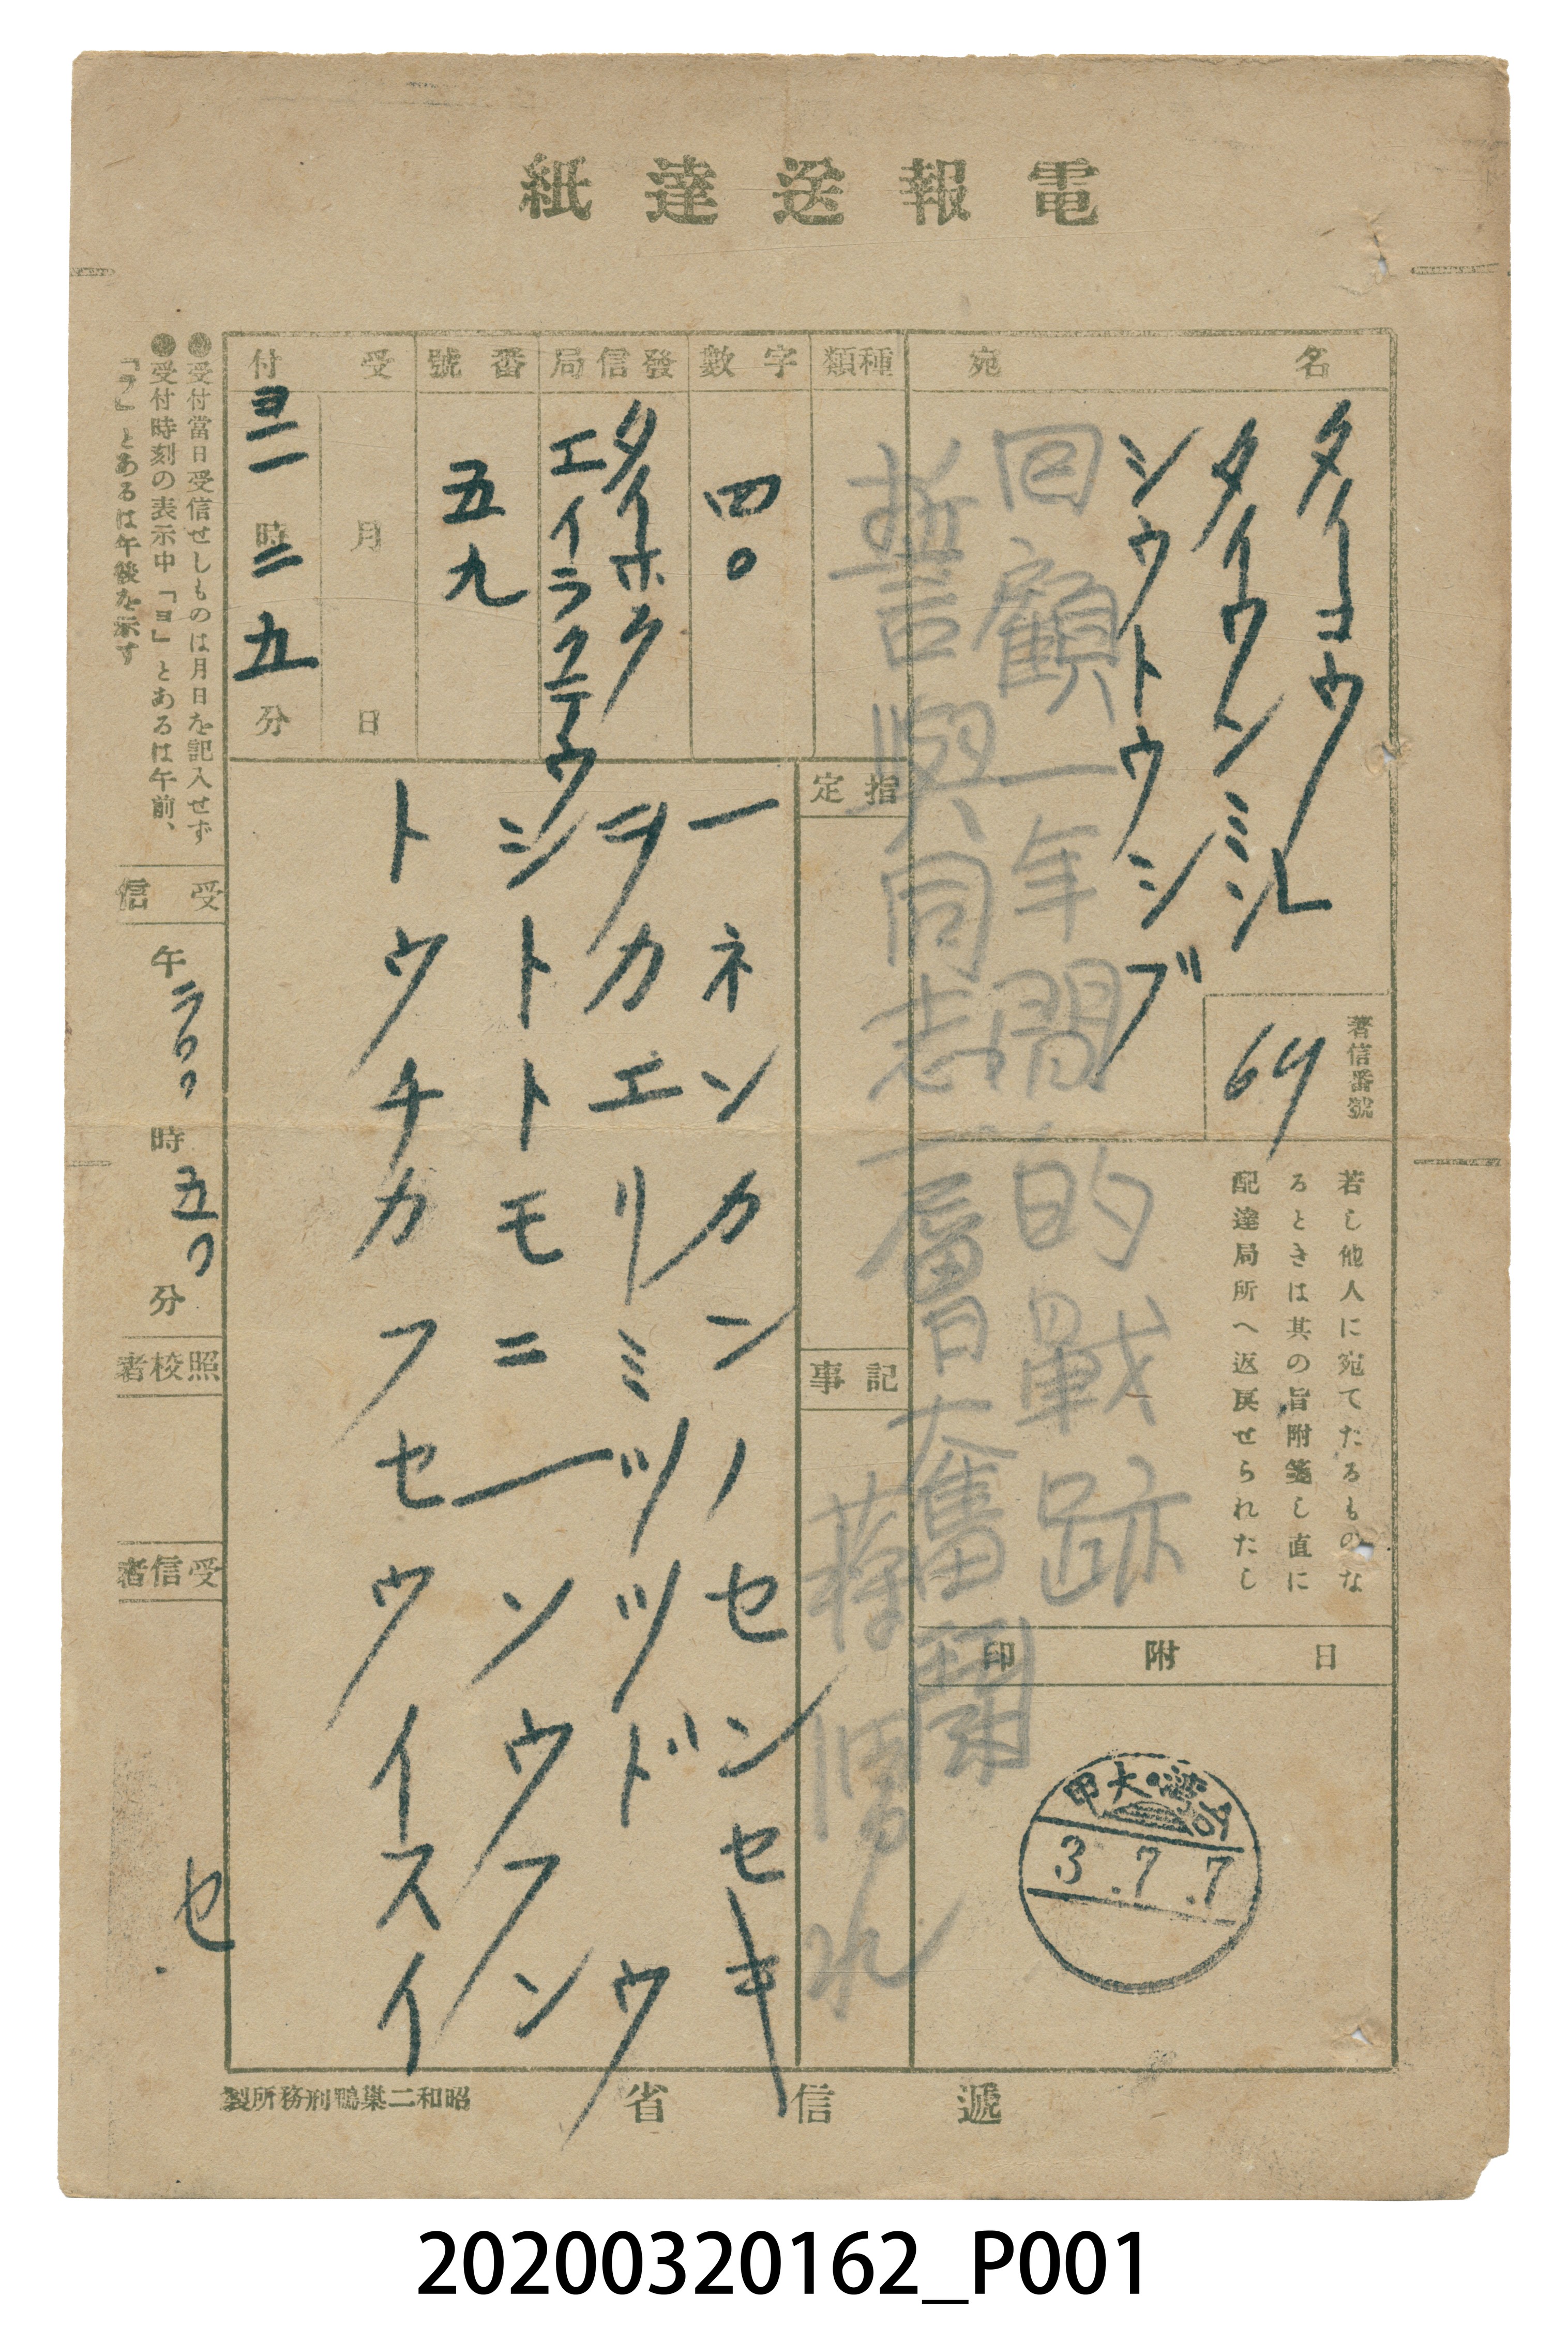 電報送達紙
宛名
タイコウ
タイワンミン
シウトウシブ
種類
字數
四〇
發信局
タイホク
エイラクテウ
番號
五九
受付
月
日
ヨ一一時二五分
著信番號
64
若し他人に宛てたるものな
るときは其の旨附箋し直に
配達局所へ返戻せられたし
日附印
台灣・大甲
3.7.7
指定
記事
回顧一年間的戰跡
誓與同志一層奮鬪
蔣渭水
一ネンカンノセンセキ
ヲカエリミツツドウ
シトトモニ一ソウフン
トウチカフセウイスイ
●受付當日受信せしものは月日を記入せず
●受付時刻の表示中「ヨ」とあるは午前、
「フ」とあるは午後を示す
受信
午
時
五〇
分
照校者
受信者
セ
遞信省
昭和二巢鴨刑務所製
20200320162_P001